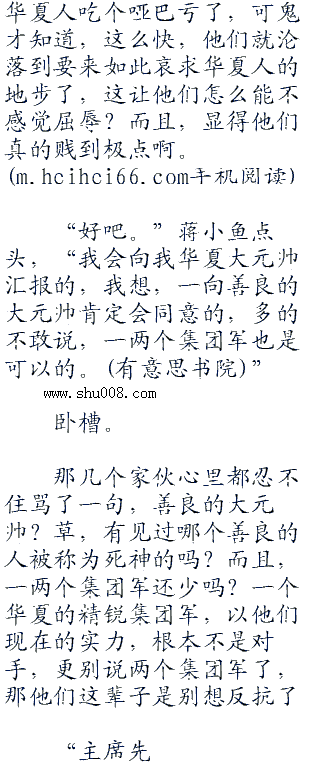 华夏人吃个哑巴亏了，可鬼
才知道，这么快，他们就沦
落到要来如此哀求华夏人的
地步了，这让他们怎么能不
感觉屈辱？而且，显得他们
真的贱到极点啊。
(m.hcihci66.com手机阅读)
“好吧。”蒋小鱼点
头，“我会向我华夏大元帅
汇报的，我想，一向善良的
大元帅肯定会同意的，多的
不敢说，一两个集团军也是
可以的。(有意思书院)”
www.shu008.com
卧槽。
那几个家伙心里都忍不
住骂了一句，善良的大元
帅？草，有见过哪个善良的
人被称为死神的吗？而且，
一两个集团军还少吗？一个
华夏的精锐集团军，以他们
现在的实力，根本不是对
手，更别说两个集团军了，
那他们这辈子是别想反抗了
“主席先